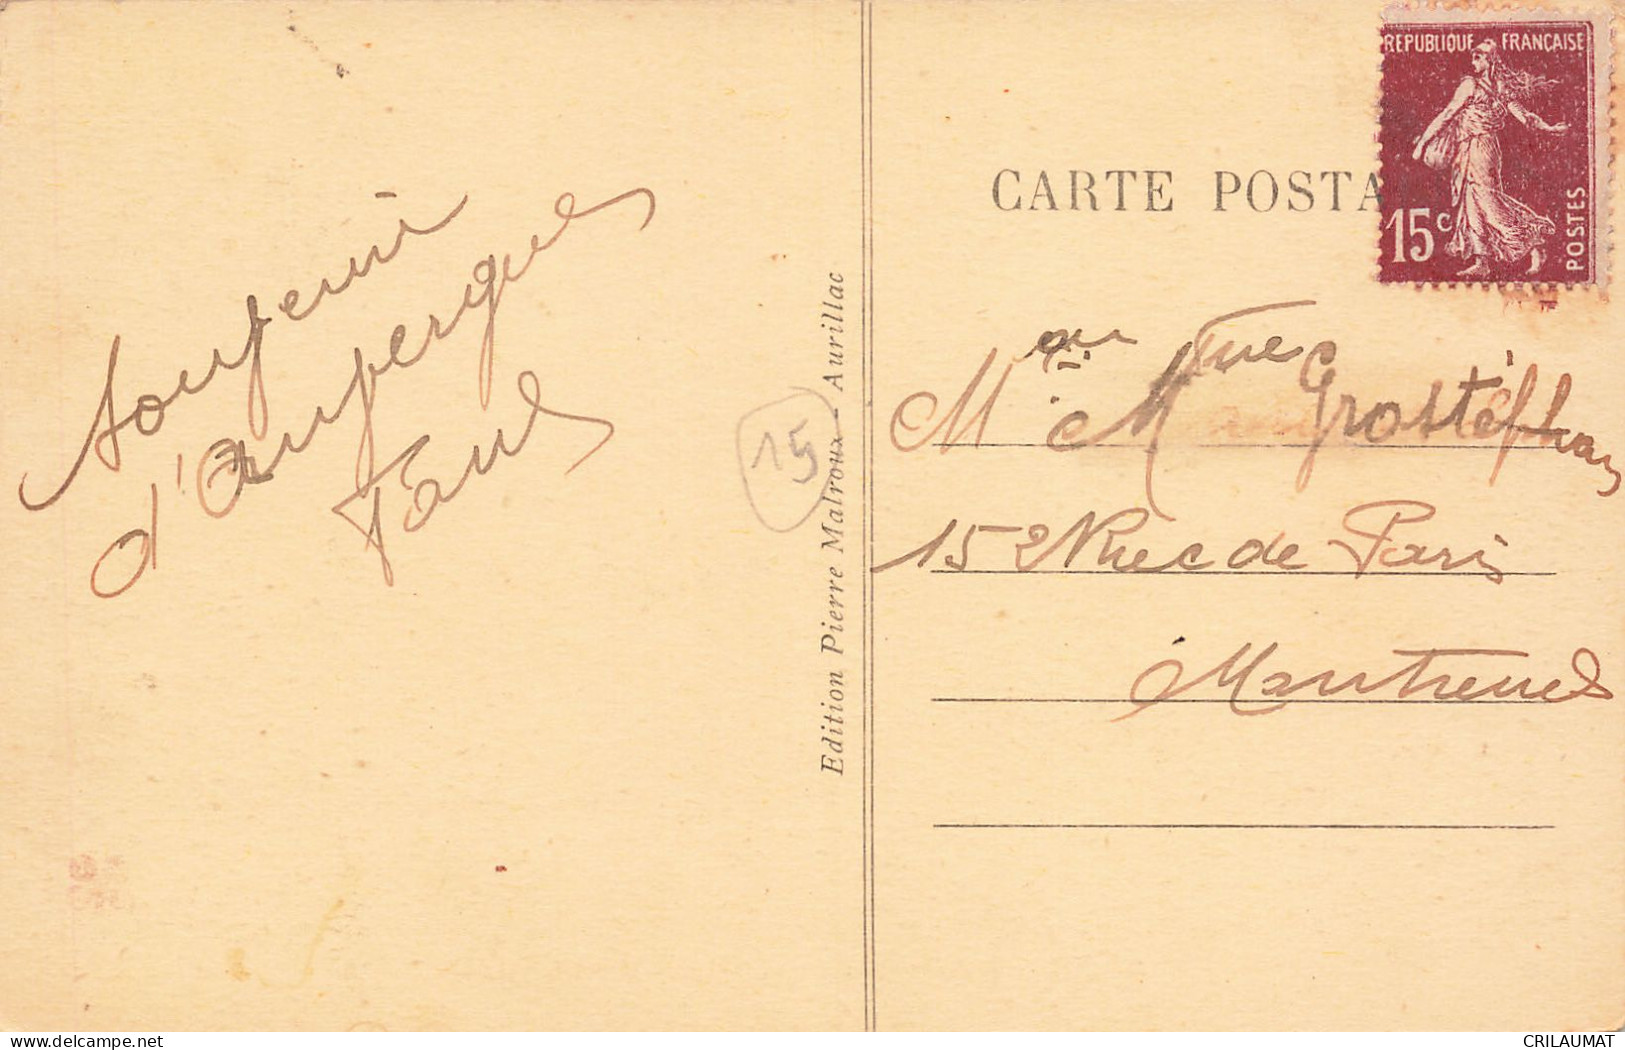 Souvenir
d'Auvergne
Paul
15
Edition Pierre Malroux - Aurillac
CARTE POSTA
REPUBLIQUE FRANÇAISE
15c
POSTES
Mr ou Mme Grostéphan
152 Rue de Paris
Montreuil
delcampe.net
CRILAUMAT